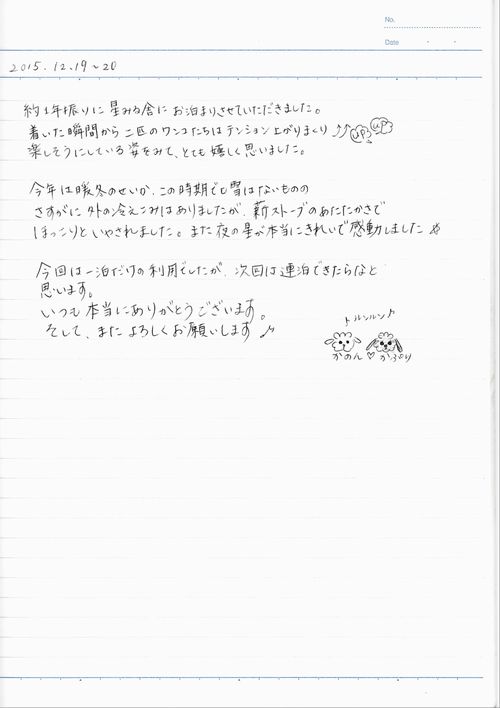 No.
Date
2015.12.19~20
約1年振りに星みる舎にお泊まりさせていただきました。
着いた瞬間から二匹のワンコたちはテンション上がりまくり↗↗ UP UP
楽しそうにしている姿をみて、とても嬉しく思いました。
今年は暖冬のせいか、この時期でも雪はないものの
さすがに外の冷えこみはありましたが、薪ストーブのあたたかさで
ほっこりといやされました。また夜の星が本当にきれいで感動しました
今回は一泊だけの利用でしたが、次回は連泊できたらなと
思います。
いつも本当にありがとうございます。
そして、またよろしくお願いします♪
♪ルンルン♪
かのん♡かぷり